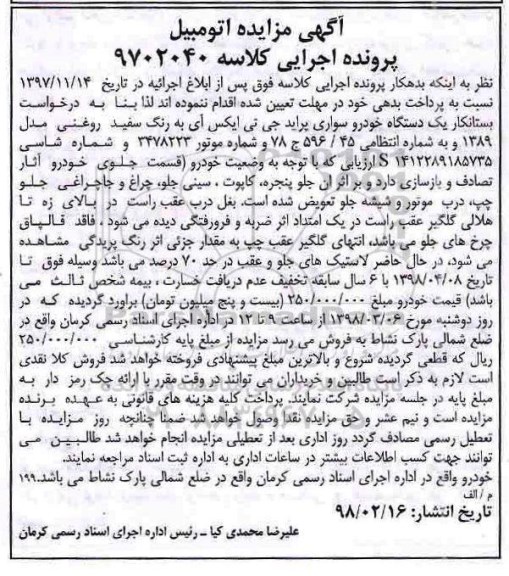 آگهی مزایده اتومبیل
پرونده اجرایی کلاسه ۹۷۰۲۰۴۰
نظر به اینکه بدهکار پرونده اجرایی کلاسه فوق پس از ابلاغ اجرائیه در تاریخ ۱۳۹۷/۱۱/۱۴
نسبت به پرداخت بدهی خود در مهلت تعیین شده اقدام ننموده اند لذا بنا به درخواست
بستانکار یک دستگاه خودرو سواری پراید جی تی ایکس آی به رنگ سفید روغنی مدل
۱۳۸۹ و به شماره انتظامی ۴۵ / ۵۹۶ ج ۷۸ و شماره موتور ۳۴۷۸۲۲۳ و شماره شاسی
S ۱۴۱۲۲۸۹۱۸۵۷۳۵ ارزیابی که با توجه به وضعیت خودرو (قسمت جلوی خودرو آثار
تصادف و بازسازی دارد و بر اثر ان جلو پنجره، کاپوت ، سینی جلو، چراغ و جاچراغی جلو
چپ، درب موتور و شیشه جلو تعویض شده است. بغل درب عقب راست در بالای زه تا
هلالی گلگیر عقب راست در یک امتداد اثر ضربه و فرورفتگی دیده می شود . فاقد قالپاق
چرخ های جلو می باشد، انتهای گلگیر عقب چپ به مقدار جزئی اثر رنگ پریدگی مشاهده
می شود، در حال حاضر لاستیک های جلو و عقب در حد ۷۰ درصد می باشد وسیله فوق تا
تاریخ ۱۳۹۸/۰۴/۰۸ با ۶ سال سابقه تخفیف عدم دریافت خسارت ، بیمه شخص ثالث می
باشد) قیمت خودرو مبلغ ۲۵۰/۰۰۰/۰۰۰ (بیست و پنج میلیون تومان) برآورد گردیده که در
روز دوشنبه مورخ ۱۳۹۸/۰۳/۰۶ از ساعت ۹ تا ۱۲ در اداره اجرای اسناد رسمی کرمان واقع در
ضلع شمالی پارک نشاط به فروش می رسد مزایده از مبلغ پایه کارشناسی ۲۵۰/۰۰۰/۰۰۰
ریال که قطعی گردیده شروع و بالاترین مبلغ پیشنهادی فروخته خواهد شد فروش کلا نقدی
است لازم به ذکر است طالبین و خریداران می توانند در وقت مقرر با ارائه چک رمز دار به
مبلغ پایه در جلسه مزایده شرکت نمایند. پرداخت کلیه هزینه های قانونی به عهده برنده
مزایده است و نیم عشر و حق مزایده نقدا وصول خواهد شد ضمنا چنانچه روز مزایده با
تعطیل رسمی مصادف گردد روز اداری بعد از تعطیلی مزایده انجام خواهد شد طالبین می
توانند جهت کسب اطلاعات بیشتر در ساعات اداری به اداره ثبت اسناد مراجعه نمایند.
خودرو واقع در اداره اجرای اسناد رسمی کرمان واقع در ضلع شمالی پارک نشاط می باشد.۱۹۹
م / الف
تاریخ انتشار: ۹۸/۰۲/۱۶
علیرضا محمدی کیا ـ رئیس اداره اجرای اسناد رسمی کرمان